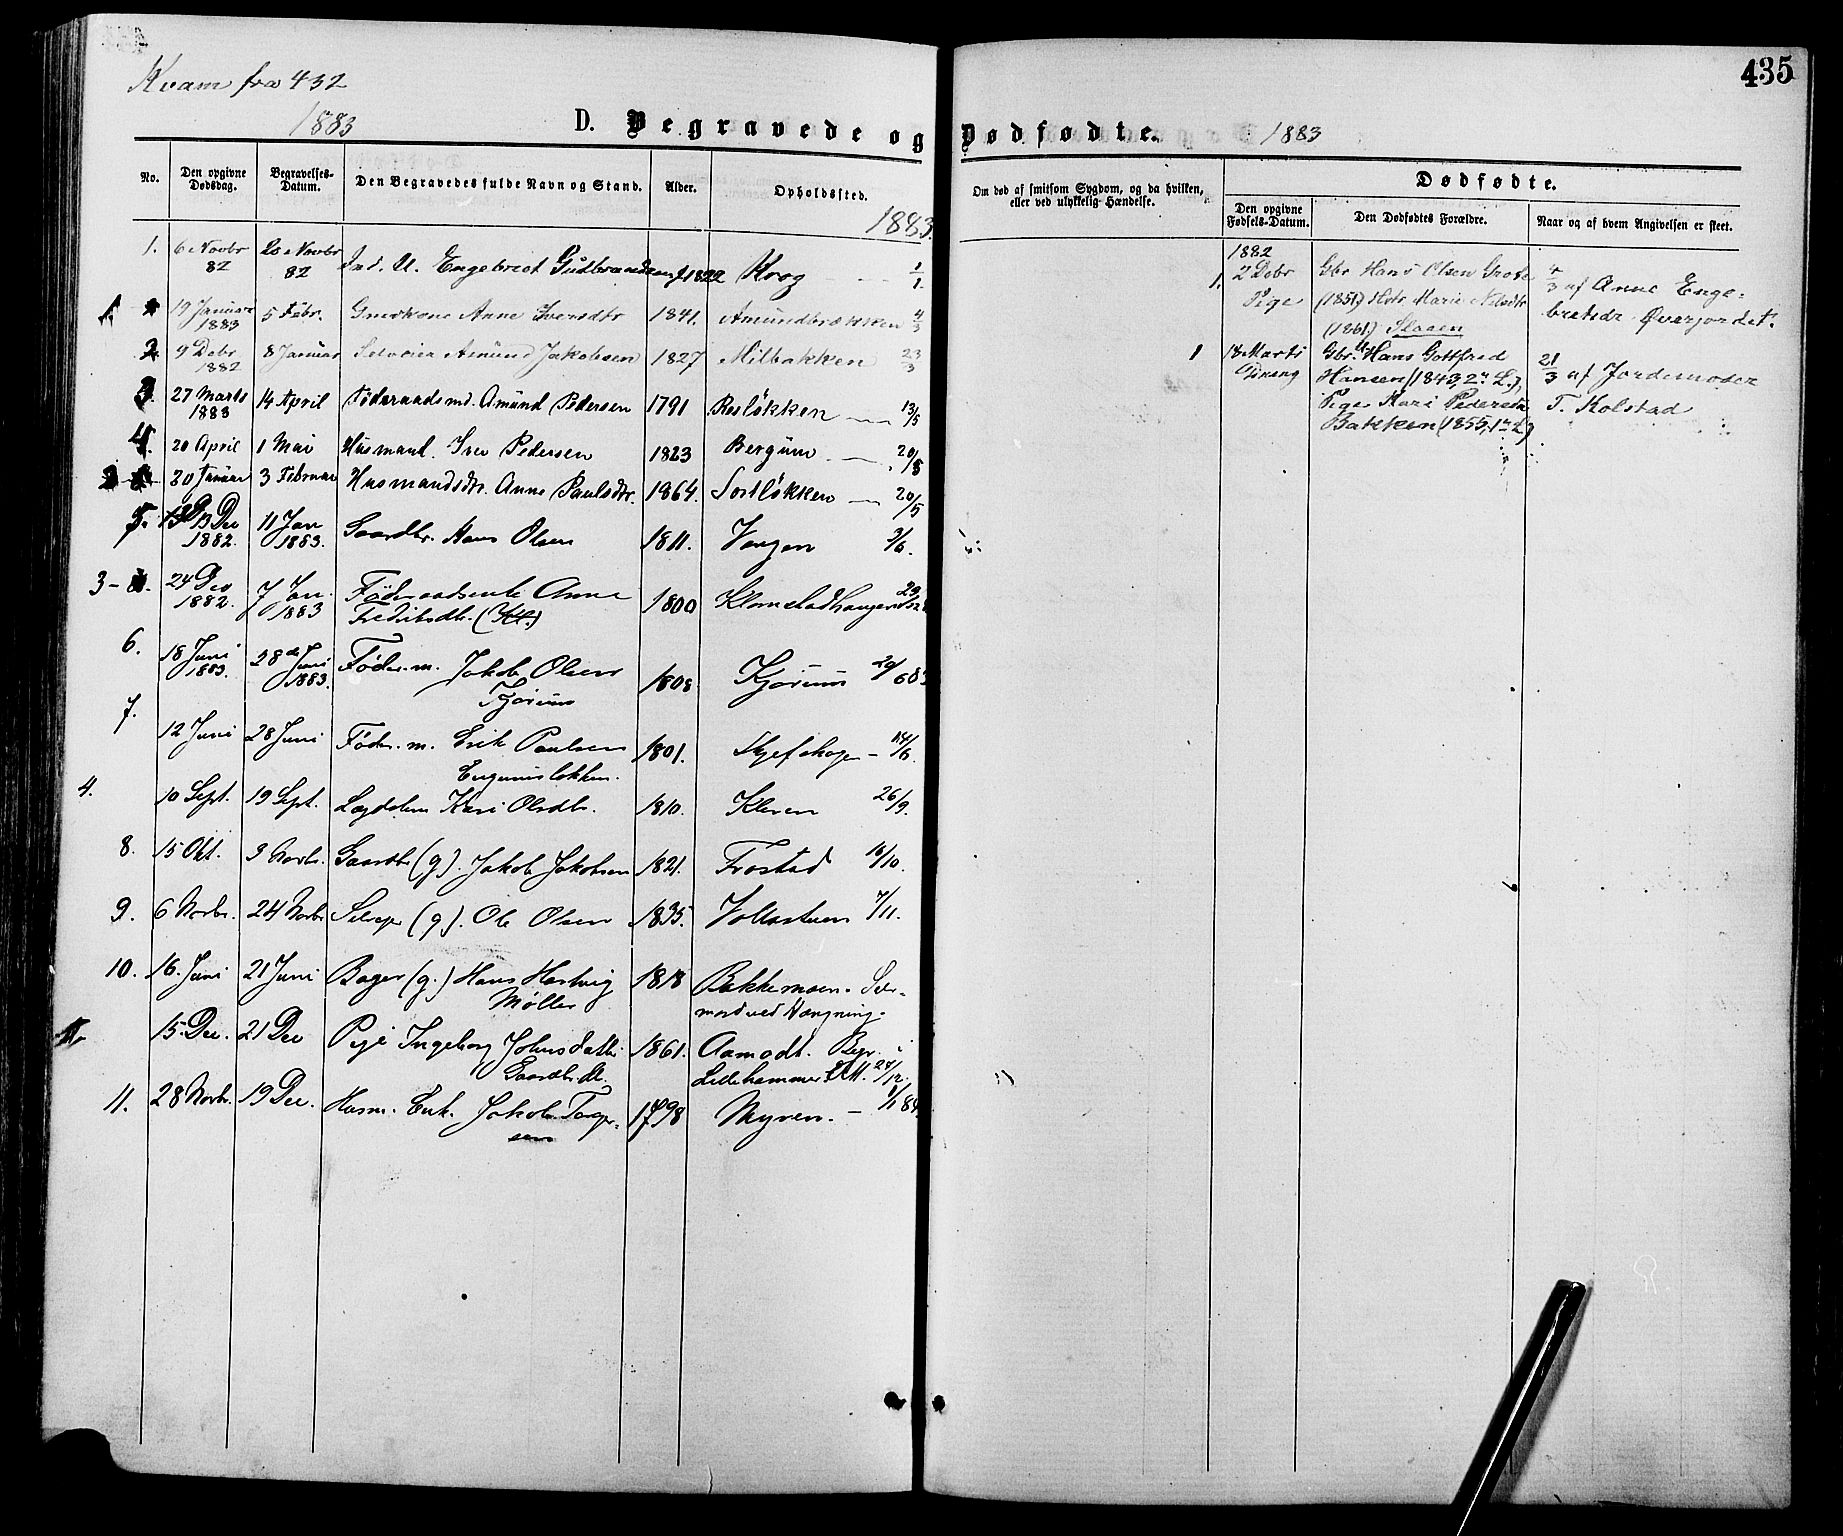 435
Kvam fra 432
1883
D. Begravede og Dødfødte.
1883
No.
Den opgivne Dødsdag.
Begravelses-Datum.
Den Begravedes fulde Navn og Stand.
Alder.
Opholdssted.
1883.
Om død af smitsom Sygdom, og da hvilken, eller ved ulykkelig Hændelse.
Dødfødte.
Den opgivne Fødsels-Datum.
Den Dødfødtes Forældre.
Naar og af hvem Angivelsen er skeet.
1. 6 Novbr 82 20 Novbr 82 Ind. U. Engebret Gudbrandsen 1822 Krog 1/1
19 Januar 1883 5 Febr. Gmdkone Anne Iversdtr 1841. Amundbrækken 4/3
2 9 Debr 1882 8 Januar Selveier Amund Jakobsen 1827 Milbakken 23/3
3. 27 Marts 1883 14 April Føderaadsmd. Amund Pedersen 1791 Resløkken 13/5
4. 20 April 1 Mai Husmand. Iver Pedersen 1823 Bergum 20/5
20 Januar 3 Februar Husmandsdtr. Anne Paulsdtr. 1864. Sortløkken 20/5
5. 13 Dec 1882. 11 Jan 1883. Gaardbr. Hans Olsen 1811. 3/6.
3 - 24 Dec 1882. 7 Jan. 1883 Føderaadsenke Anne Fredriksdtr. 1800 Klomstadhaugen
6. 18 Juni 1883. 28de Juni 1883. Føder.m. Jakob Olsen Kjørum 1808 Kjørum
7. 12 Juni 28 Juni Føder.m. Erik Paulsen 1801. 14/6.
4. 10 Sept. 19 Sept. Lægdslem Kari Olsdtr. 1810. Kleven 26/9.
8. 15 Okt. 3 Novbr. Gaardbr (g). Jakob Jakobsen 1821. Frostad 16/10.
9. 6 Novbr. 24 Novbr. Selvejer (g). Ole Olsen 1835. 7/11.
10. 16. Juni 21 Juni Bager (g.) Hans Hartvig Møller 1818 Bakkemoen. Selvmord ved Hængning.
15. Dec. 21 Dec Pige Ingeborg Johnsdatter 1861. Aamodt. Begr. Lillehammer 24/12.
11. 28 Novbr. 19 Dec. Husm. Enk. Jakob 1798 Myren.
1882
1. 2 Debr Pige
Gbr Hans Olsen
(1857) Hstr. Marie Nilsdtr
(1861.) Slaaen
4/3 af Anne Enge-
bretsdr Øverjordet.
1 18 Marts Dreng
Gbr. Hans Gottfred
Hansen (1843, 2n L.),
Pige Kari Pedersdtr
Bakken (1855, 1n L)
21/3 af Jordemoder
T. Kolstad